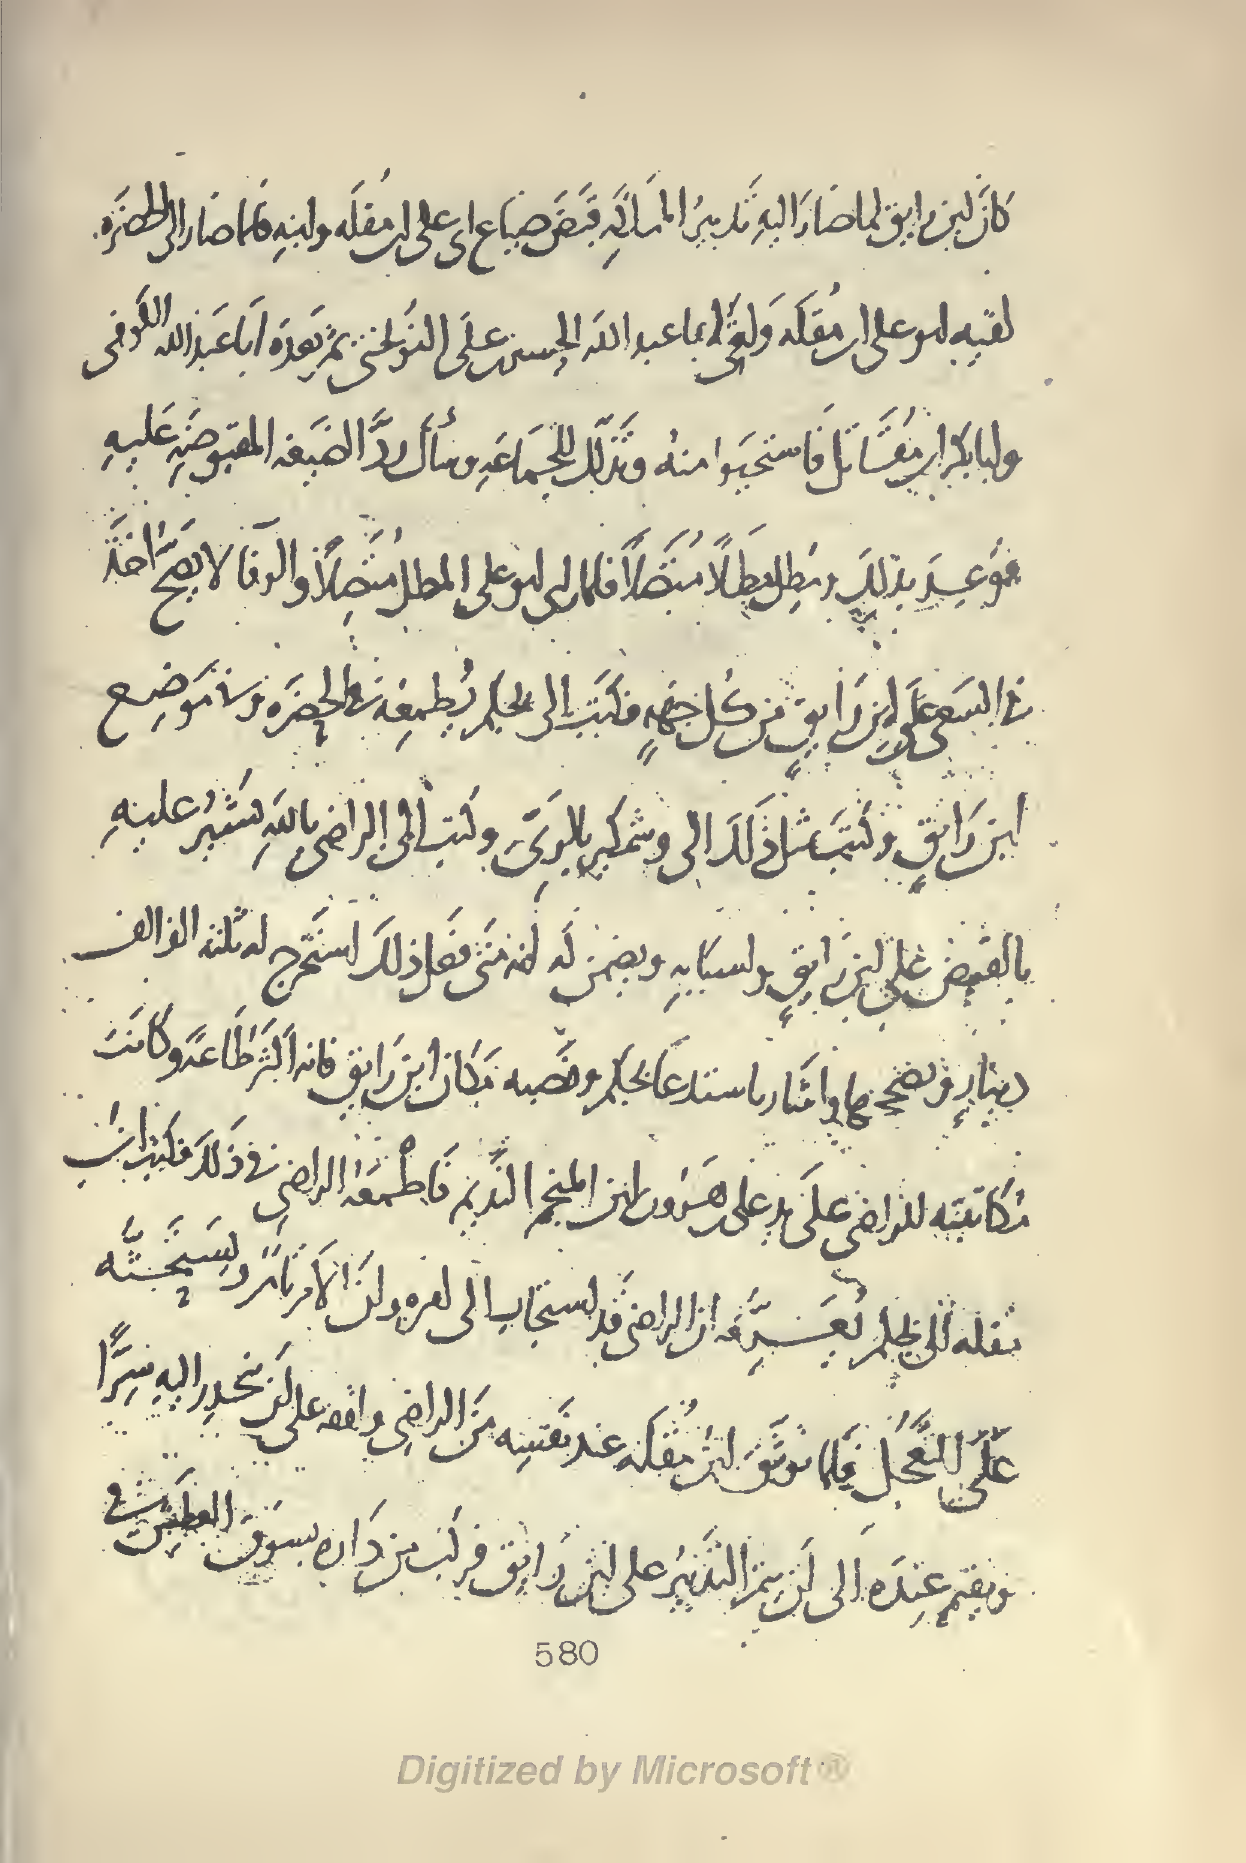 كانَ ابن رايق لما صَارَ اليهِ تَدبيرُ المملكَهِ قَبَضَ ضياع ابى على ابن مُقلَه وابنِهِ فلما صَار الى الحضَره
لقيَه ابو على ابن مُقلَه وَلقىَ ابا عبد الله الحسين بن علىّ النُوبَختى ثم بَعدَه اَبَا عَبدِ الله الكوفى
وابا بكر ابن مُقَاتل فَاستحيَوا منهُ وتَذَلّل للجَمَاعَهِ وسأَلَ رَدَّ الضيعَه المقبوضَهِ عَليهِ
فوُعِدَ بذلكَ ومُطِلَ مِطَالًا مُتّصِلاً فلما راى ابو على المطلَ مُتّصِلاً والوفا لا يصحّ اخَذَ
فى السَعى على ابن رَايقٍ مِن كُل جهَهٍ فكَتَبَ الى بجكم يُطمِعُه فى الحَضرَه وفى مَوضِع
ابن رَايقٍ وكتَبَ بمثل ذَلكَ الى وشمكير بالرىّ وكتب الى الراضى باللهِ يشيُر عليهِ
بالقَبضِ على ابن رَايقٍ واسبَابِهِ ويضمن لَه انه مَتَى فَعل ذلكَ استَخرج له ثلثه الف الف
دينارٍ وبصحح بها واشَار باستدعَا بجكم ونصبه مَكَان ابن رَايق فانه اَكثَرُ طَاعَهً وكانَت
مُكاتَبته للراضى على يد على بن هَرُون ابن المنجم النَديم فَاطْمعَهُ الراضى فى ذَلكَ فكتب ابن
مقله الى بجكم يُعَرِّفه ان الراضى قَد استجاب الى امره وان الاَمر تامّ ويَستَحِثُّه
عَلَى التَعجُل فلما توثَق ابن مُقلَه عند نَفسِه مَن الراضى وافقه على ان ينحدِر اليهِ سِرًّا
ويقيم عِندَه الى ان يتم التَدبيُر على ابن رَايق فركب من دَاره بسوق العطش فى
580
Digitized by Microsoft ®